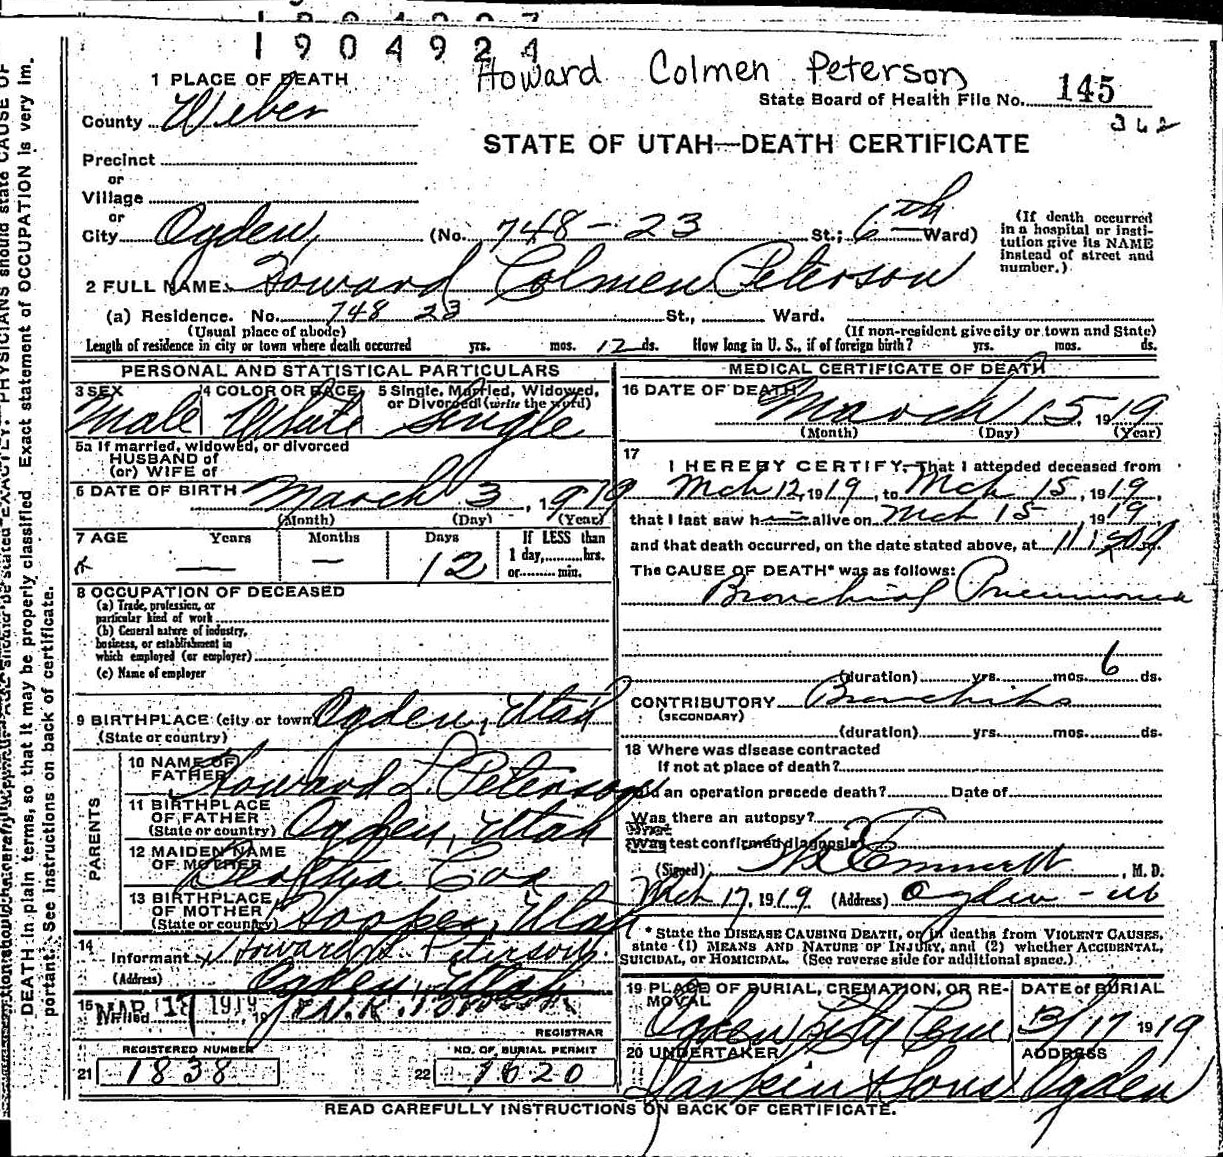 1904924
Howard Colmen Peterson
1 PLACE OF DEATH
State Board of Health File No. 145
County Weber
362
STATE OF UTAH—DEATH CERTIFICATE
Precinct
or
Village
or
City Ogden, (No. 748-23 St.; 6th Ward)
(If death occurred in a hospital or institution give its NAME instead of street and number.)
2 FULL NAME Howard Colmen Peterson
(a) Residence. No. 748 23 St., Ward.
(Usual place of abode) (If non-resident give city or town and State)
Length of residence in city or town where death occurred yrs. mos. 12 ds. How long in U. S., if of foreign birth? yrs. mos. ds.
PERSONAL AND STATISTICAL PARTICULARS
3 SEX 4 COLOR OR RACE 5 Single, Married, Widowed,
or Divorced (write the word)
Male White Single
5a If married, widowed, or divorced
HUSBAND of
(or) WIFE of
6 DATE OF BIRTH March 3, 1919
(Month) (Day) (Year)
7 AGE Years Months Days If LESS than
1 day, hrs.
or min.
— — 12
8 OCCUPATION OF DECEASED
(a) Trade, profession, or
particular kind of work
(b) General nature of industry,
business, or establishment in
which employed (or employer)
(c) Name of employer
9 BIRTHPLACE (city or town) Ogden, Utah
(State or country)
PARENTS
10 NAME OF
FATHER Howard L. Peterson
11 BIRTHPLACE
OF FATHER
(State or country) Ogden, Utah
12 MAIDEN NAME
OF MOTHER Cox
13 BIRTHPLACE
OF MOTHER
(State or country) Hooper, Utah
14
Informant Howard L. Peterson
(Address) Ogden, Utah
15 Filed MAR 17 1919, 19
REGISTRAR
REGISTERED NUMBER NO. OF BURIAL PERMIT
21 1838 22 1620
MEDICAL CERTIFICATE OF DEATH
16 DATE OF DEATH
March 15, 1919
(Month) (Day) (Year)
17
I HEREBY CERTIFY, That I attended deceased from
Mch 12, 1919, to Mch 15, 1919,
that I last saw h alive on Mch 15 1919
and that death occurred, on the date stated above, at
The CAUSE OF DEATH* was as follows:
Bronchial Pneumonia
(duration) yrs. mos. 6 ds.
CONTRIBUTORY Bronchitis
(SECONDARY)
(duration) yrs. mos. ds.
18 Where was disease contracted
If not at place of death?
Did an operation precede death? Date of
Was there an autopsy?
What test confirmed diagnosis?
(Signed) Emmett, M. D.
Mch 17, 1919 (Address) Ogden - Ut
* State the DISEASE CAUSING DEATH, or in deaths from VIOLENT CAUSES,
state (1) MEANS AND NATURE OF INJURY, and (2) whether ACCIDENTAL,
SUICIDAL, or HOMICIDAL. (See reverse side for additional space.)
19 PLACE OF BURIAL, CREMATION, OR RE-
MOVAL
DATE of BURIAL
Ogden City Cem 3/17 1919
20 UNDERTAKER ADDRESS
Larkin & Sons Ogden
READ CAREFULLY INSTRUCTIONS ON BACK OF CERTIFICATE.
PHYSICIANS should state CAUSE OF
DEATH in plain terms, so that it may be properly classified. Exact statement of OCCUPATION is very im-
portant. See instructions on back of certificate.